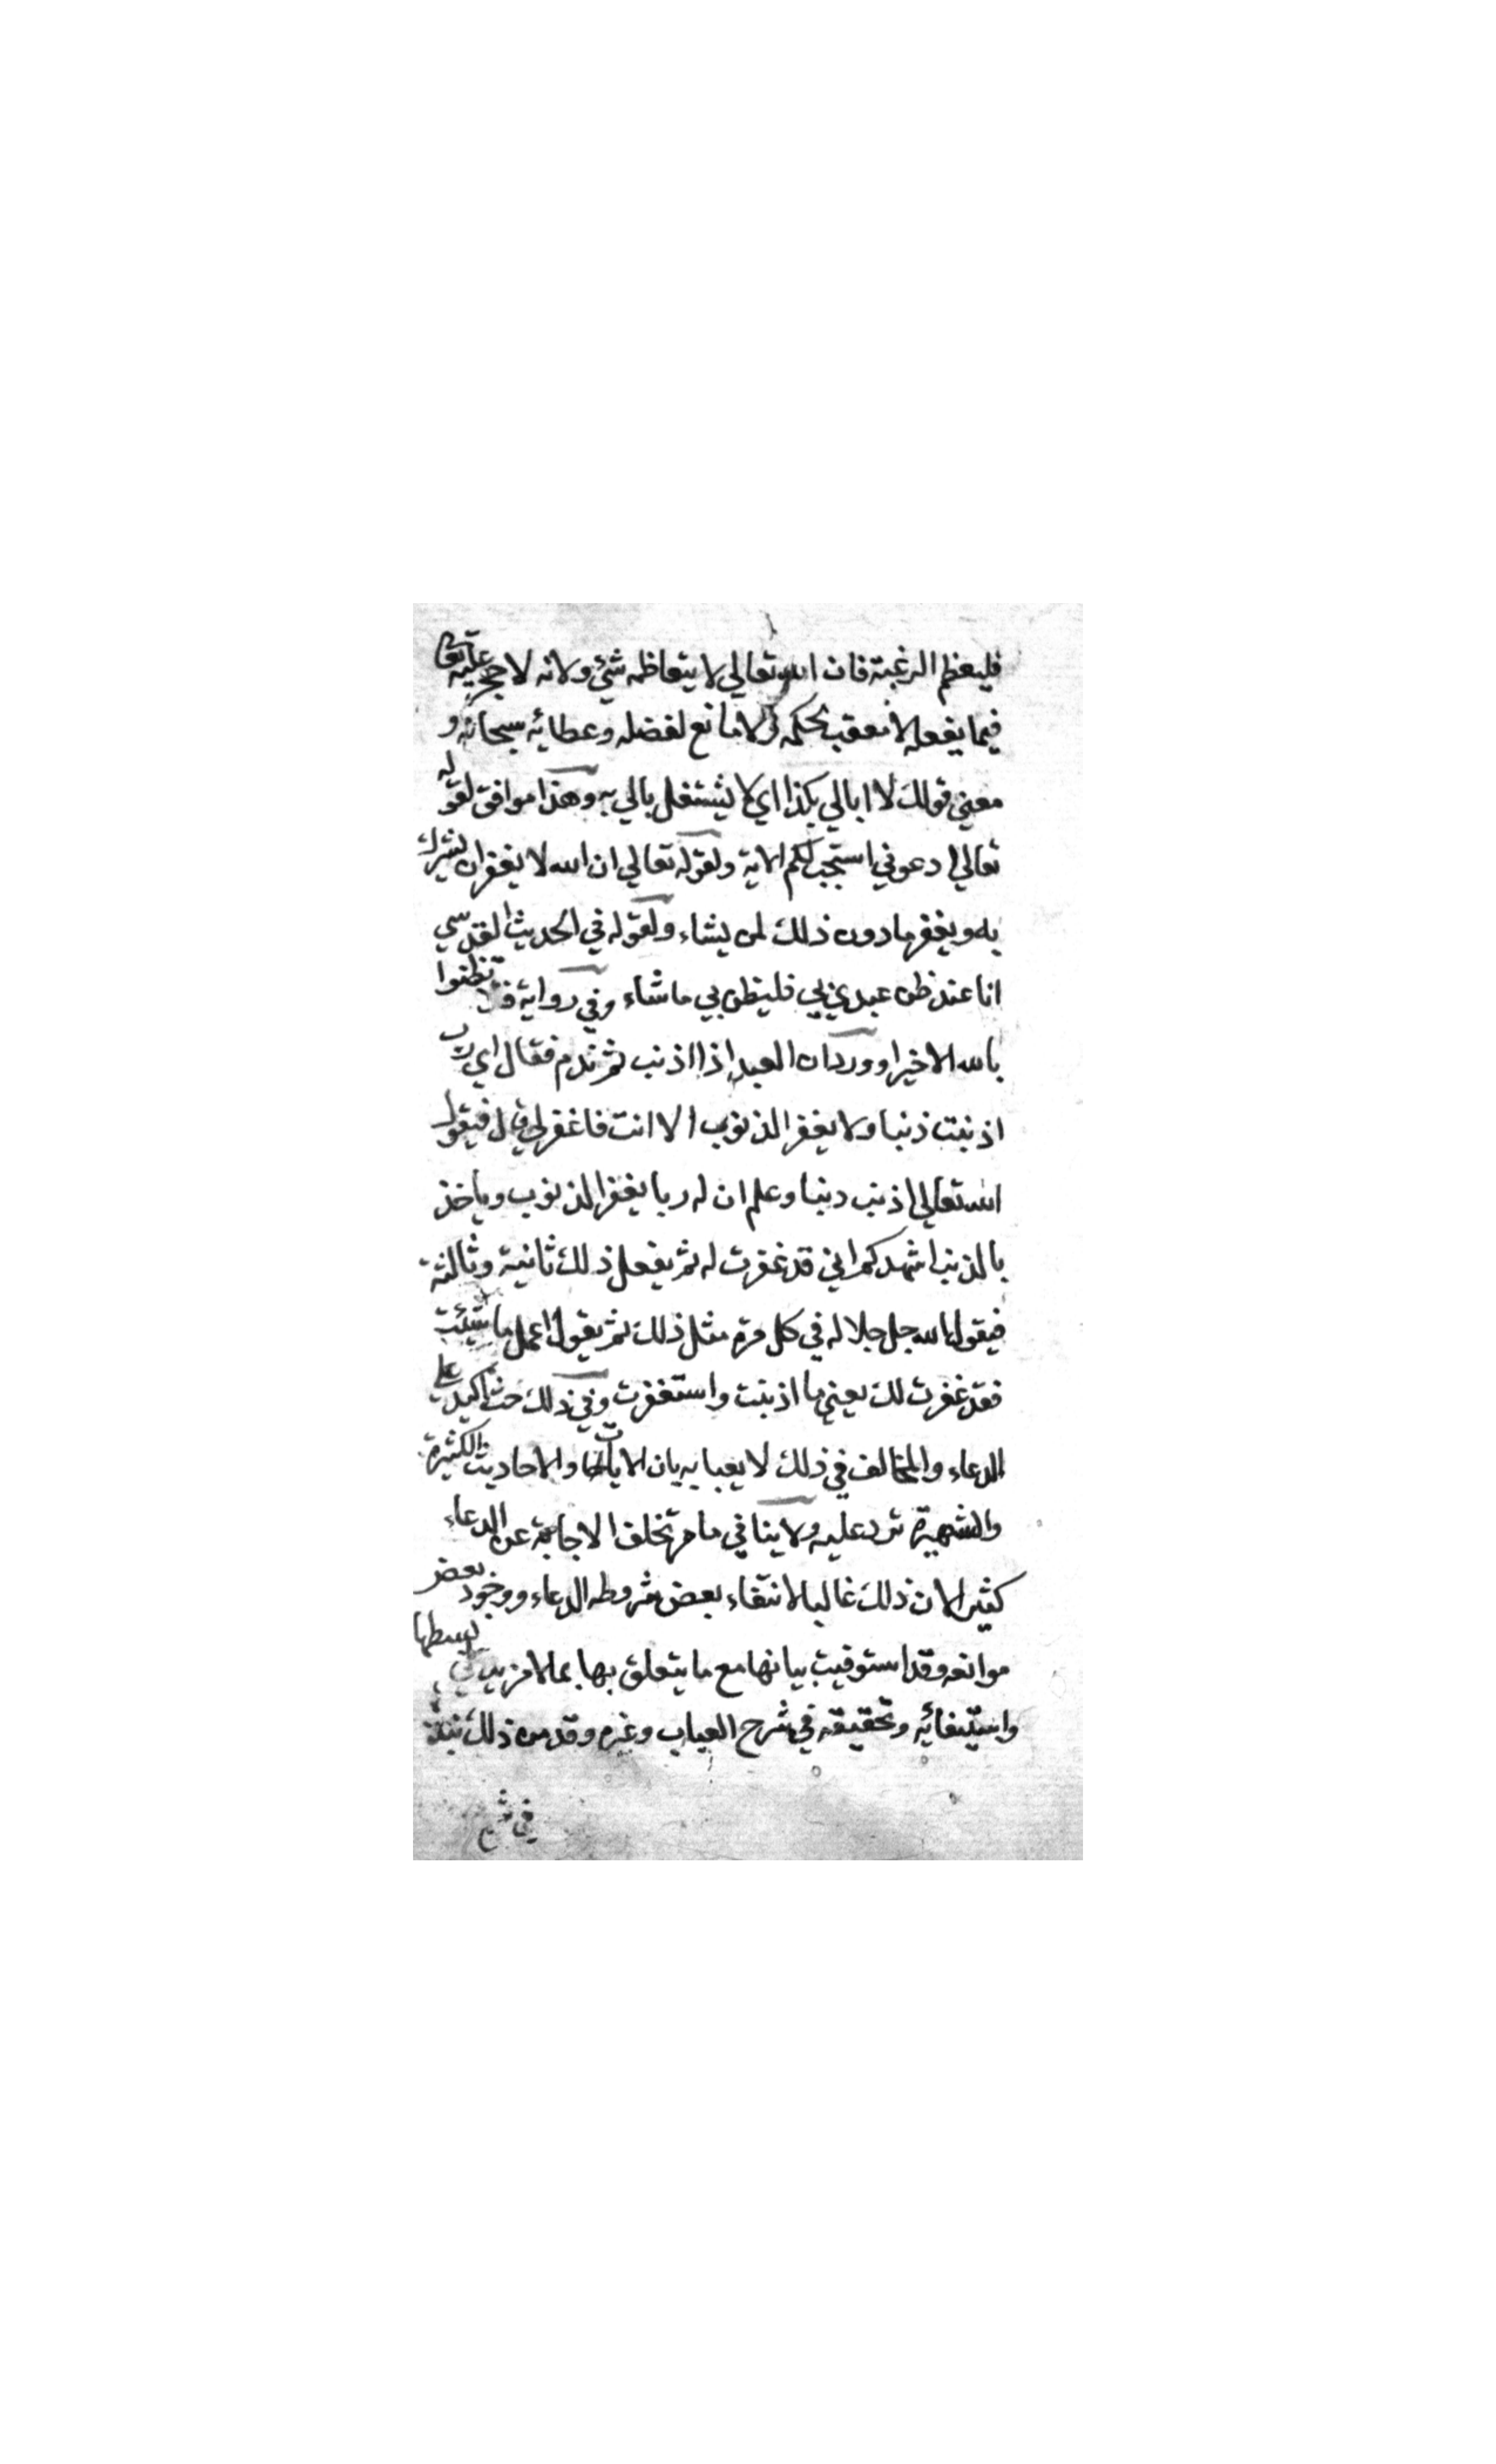 فليعظم الرغبة فان الله تعالي لا يتعاظمه شيء ولانه لا حجر عليه تعا
فيما يفعله لا معقب لحكمه ولا مانع لفضله وعطائه سبحانه و
معني قولك لا ابالي بكذا اي لا يشتغل بالي به وهذا موافق لقوله
تعالي ادعوني استجب لكم الاية ولقوله تعالي ان الله لا يغفر ان يشرك
به ويغفر ما دون ذلك لمن يشاء ولقوله في الحديث القدسي
انا عند ظن عبدي بي فليظن بي ما شاء وفي رواية فلا تظنوا
بالله الا خيرا وورد ان العبد اذا اذنب ثم ندم فقال اي رب
اذنبت ذنبا ولا يغفر الذنوب الا انت فاغفر لي قال فيقول
الله تعالي اذنب دنبا وعلم ان له ربا يغفر الذنوب وياخذ
بالذنب اشهدكم اني قد غفرت له ثم يفعل ذلك ثانية وثالثة
فيقول الله جل جلاله في كل مرة مثل ذلك ثم يقول اعمل ما شئت
فقد غفرت لك يعني ما اذنبت واستغفرت وفي ذلك حث اكيد علي
الدعاء والمخالف في ذلك لا يعبا به بان الايات والاحاديث الكثيرة
والشهيرة ترد عليه ولا ينافي ما مر تخلف الاجابة عن الدعاء
كثيرا لان ذلك غالبا لانتفاء بعض شروط الدعاء ووجود بعض
موانعه وقد استوفيت بيانها مع ما يتعلق بها بما لا مزيد في بسطها
واستيفائه وتحقيقه في شرح العباب وغيره وقد مر ذلك نبذة
في شرح